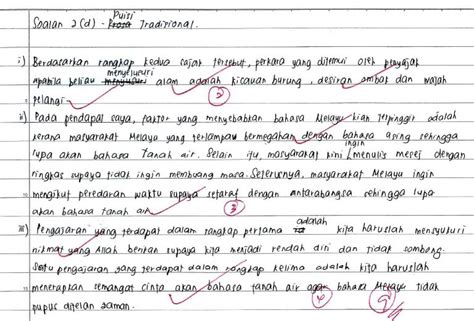 Puisi
Soalan 2(d) - Prosa Tradisional.
i) Berdasarkan rangkap kedua sajak tersebut, perkara yang ditemui oleh penyajak
menyelusuri
apabila beliau menyusuri alam adalah kicauan burung, desiran ombak dan wajah
pelangi.
2
ii) Pada pendapat saya, faktor yang menyebabkan bahasa Melayu kian terpinggir adalah
kerana masyarakat Melayu yang terlampau bermegahan dengan bahasa asing sehingga
ingin
lupa akan bahasa tanah air. Selain itu, masyarakat kini menulis mesej dengan
ringkas supaya tidak ingin membuang masa. Seterusnya, masyarakat Melayu ingin
mengikut peredaran waktu supaya setaraf dengan antarabangsa sehingga lupa
akan bahasa tanah air.
3
adalah
iii) Pengajaran yang terdapat dalam rangkap pertama kita haruslah mensyukuri
nikmat yang Allah berikan supaya kita menjadi rendah diri dan tidak sombong.
Satu pengajaran yang terdapat dalam rangkap kelima adalah kita haruslah
menerapkan semangat cinta akan bahasa tanah air agar bahasa Melayu tidak
pupus ditelan zaman.
4
9